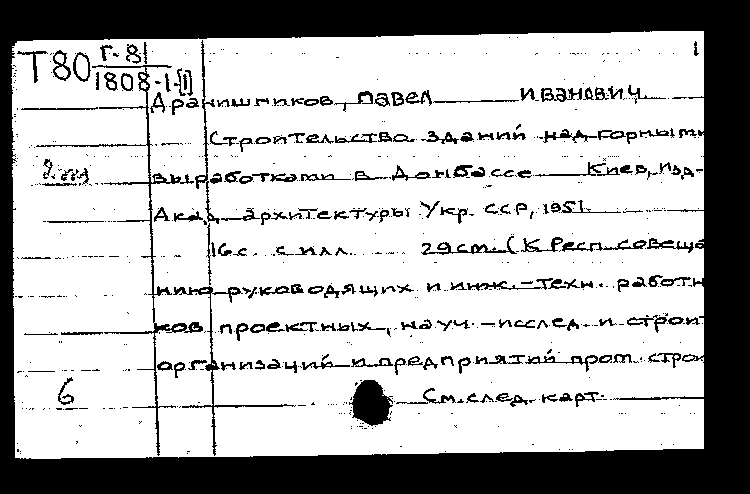 Т80 Г-8 1
1808-1-[1]
Дранишников, Павел Иванович
Строительство зданий над горными
2 экз выработками в Донбассе Киев, Изд-
Акад. архитектуры Укр. ССР, 1951.
16 с. с илл. 29 см. (К Респ. совеща
нию руководящих и инж.-техн. работн
ков проектных, науч.-исслед. и строит
организаций и предприятий пром. строи
6 См. след. карт.